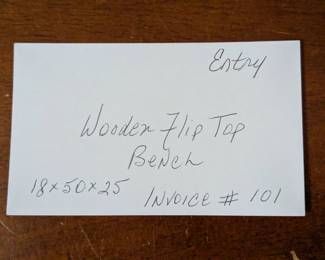 Entry
Wooden Flip Top
Bench
18x50x25
Invoice # 101